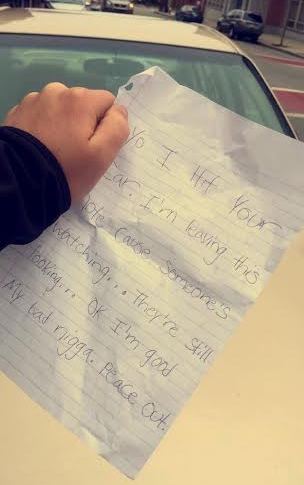 Yo I Hit Your
Car. I'm leaving this
Note Cause Someone's
watching... They're still
looking... OK I'm good
My bad nigga. Peace Out.